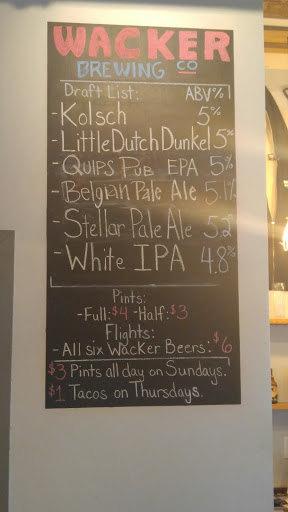 WACKER
BREWING CO
Draft List: ABV%
-Kolsch 5%
-Little Dutch Dunkel 5%
-Quips Pub EPA 5%
-Belgian Pale Ale 5.1%
-Stellar Pale Ale 5.2
-White IPA 4.8%
Pints:
-Full:$4 -Half:$3
Flights:
-All six Wacker Beers: $6
$3 Pints all day on Sundays.
$1 Tacos on Thursdays.